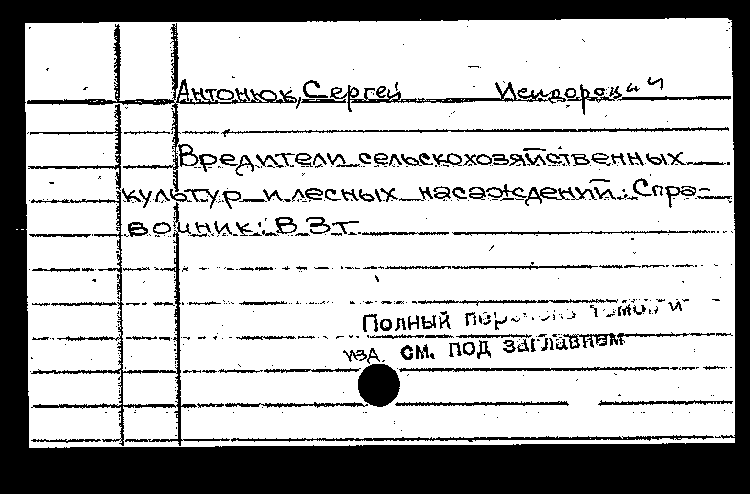 Антонюк, Сергей Исидорович
Вредители сельскохозяйственных
культур и лесных насаждений: Спра-
вочник: В 3т
Полный перечень томов и
изд. см. под заглавием